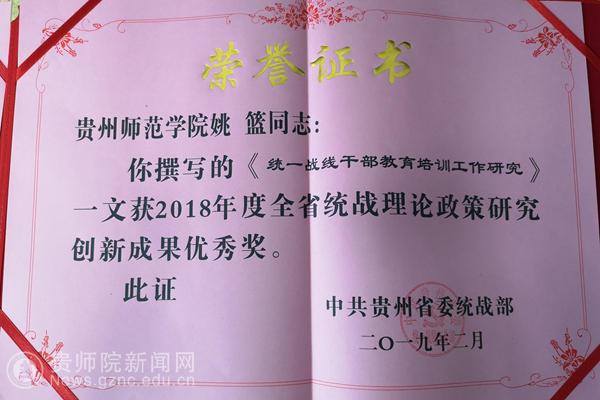 荣誉证书
贵州师范学院姚 篮同志:
你撰写的《统一战线干部教育培训工作研究》
一文获2018年度全省统战理论政策研究
创新成果优秀奖。
此证
中共贵州省委统战部
二〇一九年二月
贵师院新闻网
News.gznc.edu.cn